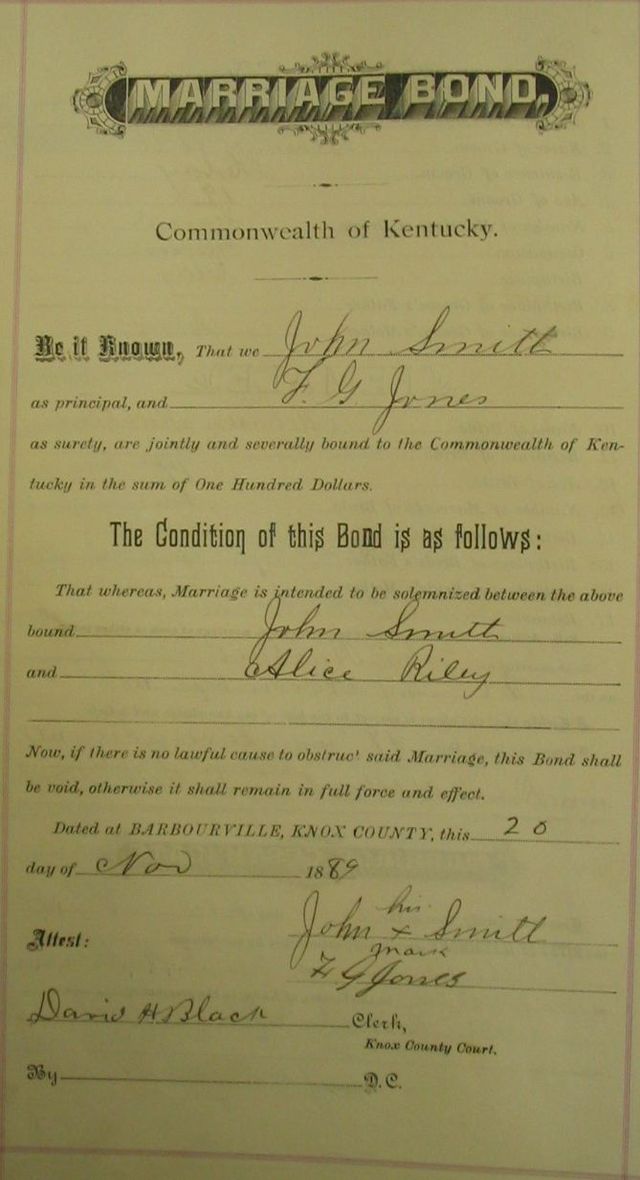 MARRIAGE BOND,
Commonwealth of Kentucky.
Be it Known, That we John Smith
as principal, and F. G Jones
as surety, are jointly and severally bound to the Commonwealth of Ken-
tucky in the sum of One Hundred Dollars.
The Condition of this Bond is as follows:
That whereas, Marriage is intended to be solemnized between the above
bound John Smith
and Alice Riley
Now, if there is no lawful cause to obstruc' said Marriage, this Bond shall
be void, otherwise it shall remain in full force and effect.
Dated at BARBOURVILLE, KNOX COUNTY, this 20
day of Nov 1889
his
Attest: John x Smith
mark
F G Jones
David H Black Clerk,
Knox County Court.
By D.C.